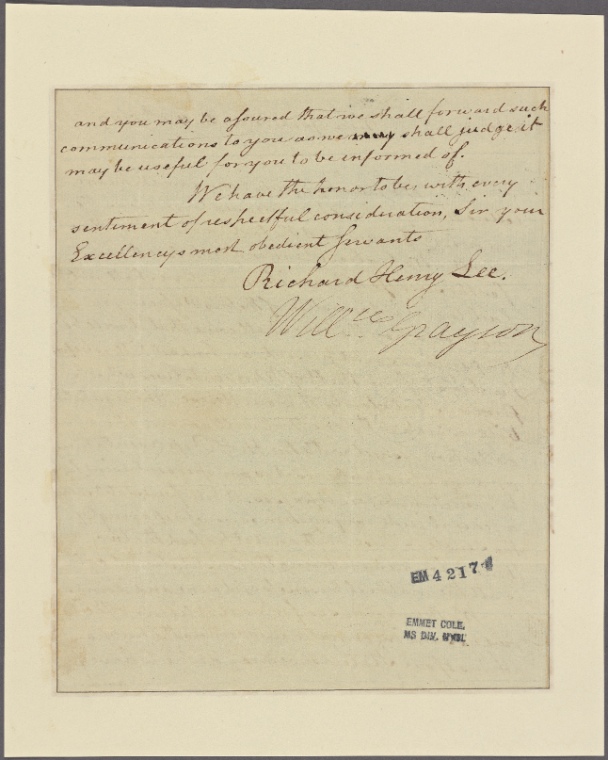 and you may be assured that we shall forward such
communications to you as we may shall judge it
may be useful for you to be informed of.
We have the honor to be, with every
sentiment of respectful consideration, Sir your
Excellencys most obedient Servants
Richard Henry Lee.
Will^m Grayson
EM 4217
EMMET COLL.
MS DIV. NYPL